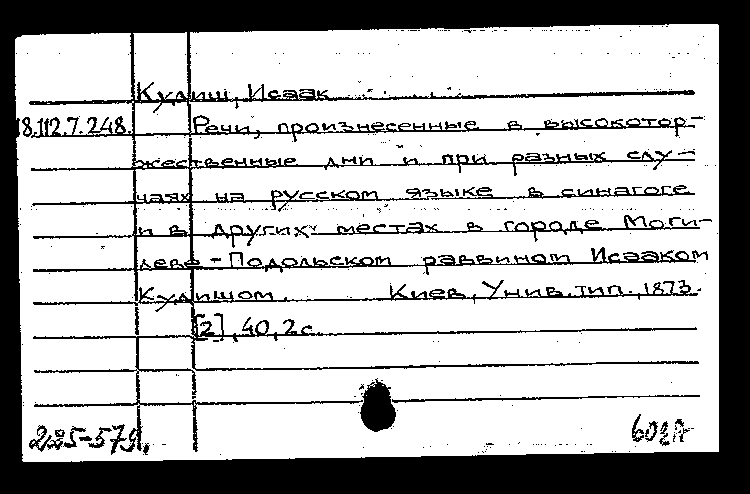 Кудиш, Исаак
18.112.7.248. Речи, произнесенные в высокотор-
жественные дни и при разных слу-
чаях на русском языке в синагоге
и в других местах в городе Моги-
леве-Подольском раввином Исааком
Кудишом. Киев, Унив. тип., 1873.
[2], 40, 2 с.